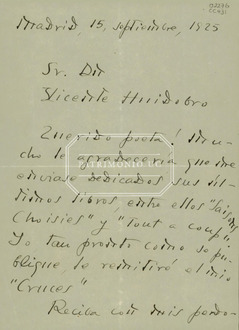 Madrid, 15, septiembre, 1925
Sr. Dn
Vicente Huidobro
Querido poeta: Mu-
cho le agradecería que me
enviase dedicados sus úl-
timos libros, entre ellos "Saisons
Choisies" y "Tout a coup".
Yo tan pronto como se pu-
blique, le remitiré el mio
"Cruces"
Reciba con mis perdo-
PATRIMONIO UC